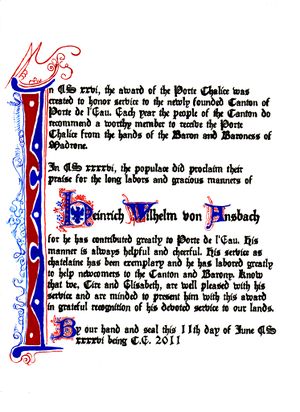 In AS xxvi, the award of the Porte Chalice was
created to honor service to the newly founded Canton of
Porte de l'Eau. Each year the people of the Canton do
recommend a worthy member to receive the Porte
Chalice from the hands of the Baron and Baroness of
Madrone.
In AS xxxxvi, the populace did proclaim their
praise for the long labors and gracious manners of
Heinrich Wilhelm von Ansbach
for he has contributed greatly to Porte de l'Eau. His
manner is always helpful and cherful. His service as
chatelaine has been exemplary and he has labored greatly
to help newcomers to the Canton and Barony. Know
that we, Circ and Elisabeth, are well pleased with his
service and are minded to present him with this award
in grateful recognition of his devoted service to our lands.
By our hand and seal this 11th day of June AS
xxxxvi being C.E. 2011